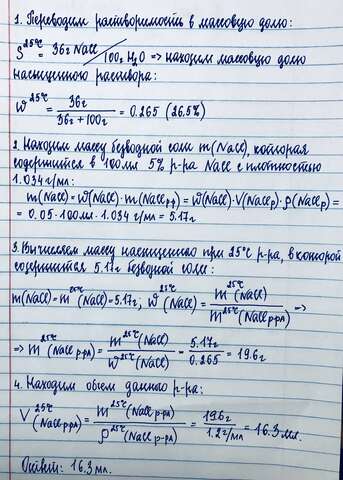 1. Переводим растворимость в массовую долю:
S^25°C = 36г NaCl / 100г H₂O => находим массовую долю
насыщенного раствора:
W^25°C = 36г / (36г + 100г) = 0.265 (26.5%)
2. Находим массу безводной соли m(NaCl), которая
содержится в 100мл 5% р-ра NaCl с плотностью
1.034 г/мл:
m(NaCl) = W(NaCl) · m(NaCl р-р) = W(NaCl) · V(NaCl р) · ρ(NaCl р) =
= 0.05 · 100мл · 1.034 г/мл = 5.17г
3. Вычисляем массу насыщенного при 25°C р-ра, в которой
содержится 5.17г безводной соли:
m(NaCl) = m^25°C(NaCl) = 5.17г; W^25°C(NaCl) = m^25°C(NaCl) / m^25°C(NaCl р-ра) =>
=> m^25°C(NaCl р-ра) = m^25°C(NaCl) / W^25°C(NaCl) = 5.17г / 0.265 = 19.6г
4. Находим объем данного р-ра:
V^25°C(NaCl р-ра) = m^25°C(NaCl р-ра) / ρ^25°C(NaCl р-ра) = 19.6г / 1.2 г/мл = 16.3 мл.
Ответ: 16.3 мл.